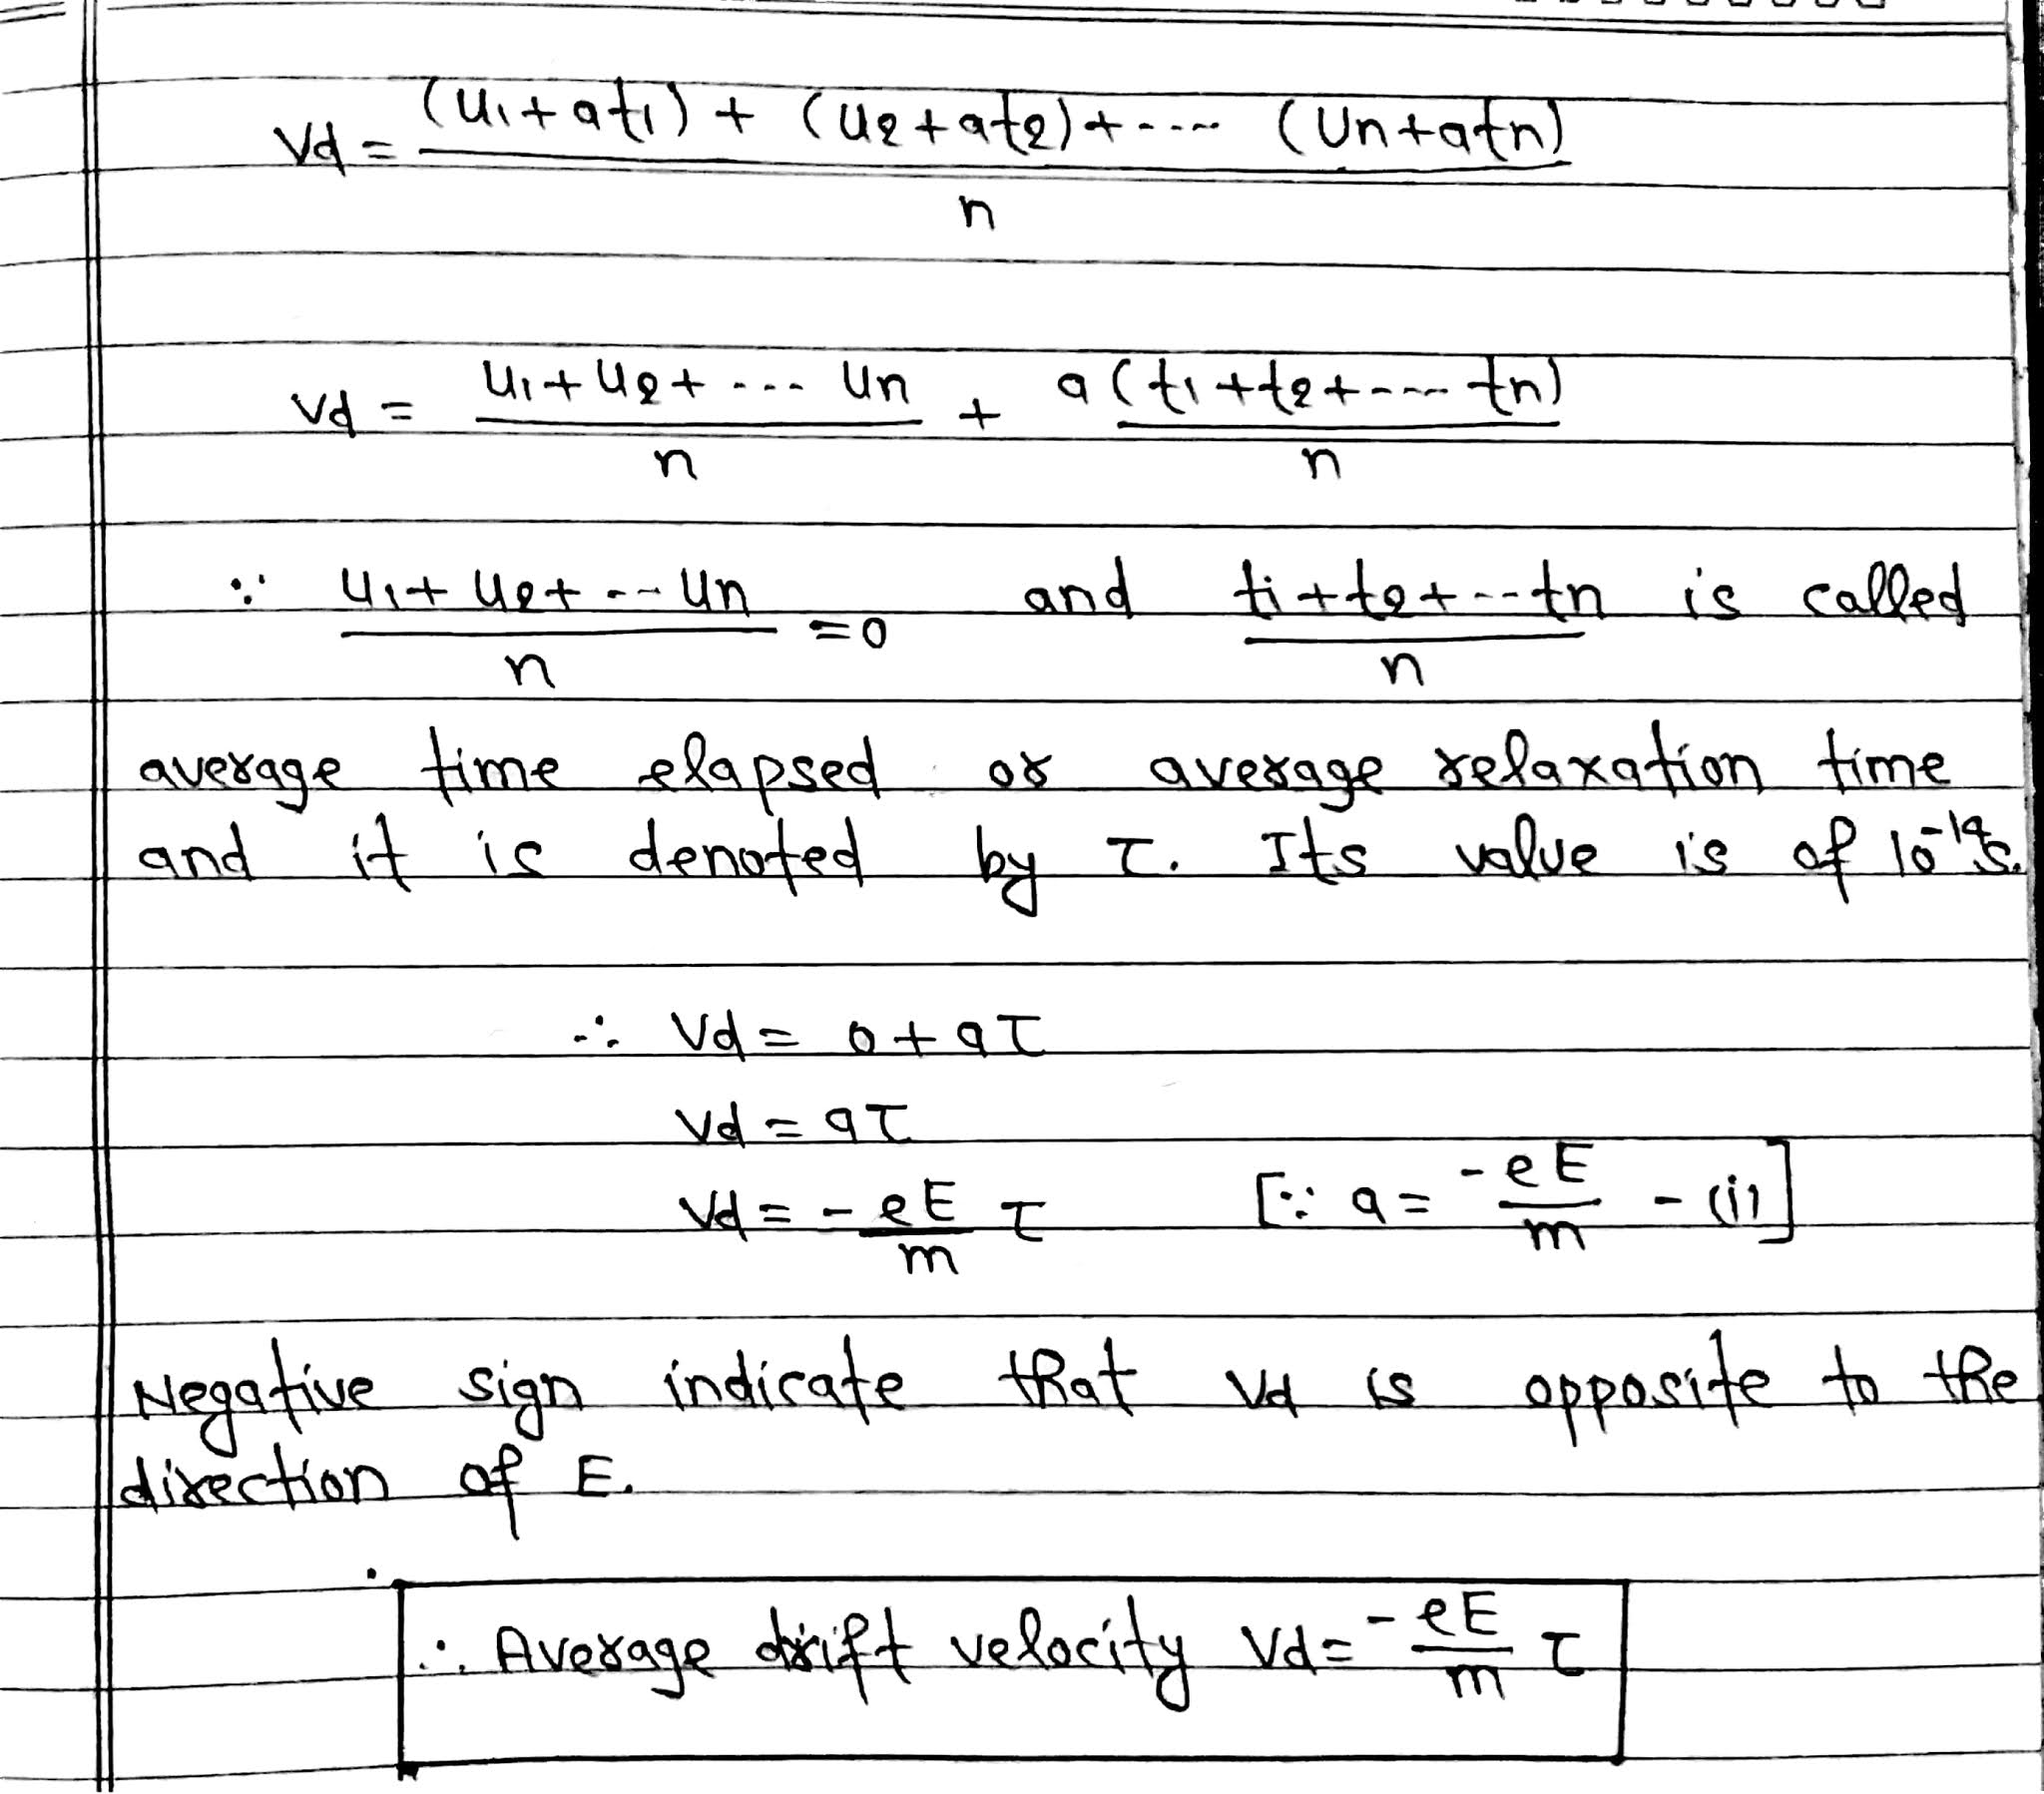 Vd = (u1+at1) + (u2+at2)+---- (Un+atn)
n
Vd = u1+u2+ ---- un + a(t1+t2+----tn)
n n
∵ u1+u2+---un =0 and t1+t2+--tn is called
n n
average time elapsed or average relaxation time
and it is denoted by τ. Its value is of 10⁻¹⁴s.
∴ Vd = 0+aτ
Vd = aτ
Vd = -eE τ [∵ a = -eE - (i)]
m m
Negative sign indicate that Vd is opposite to the
direction of E.
∴ Average drift velocity Vd = -eE τ
m